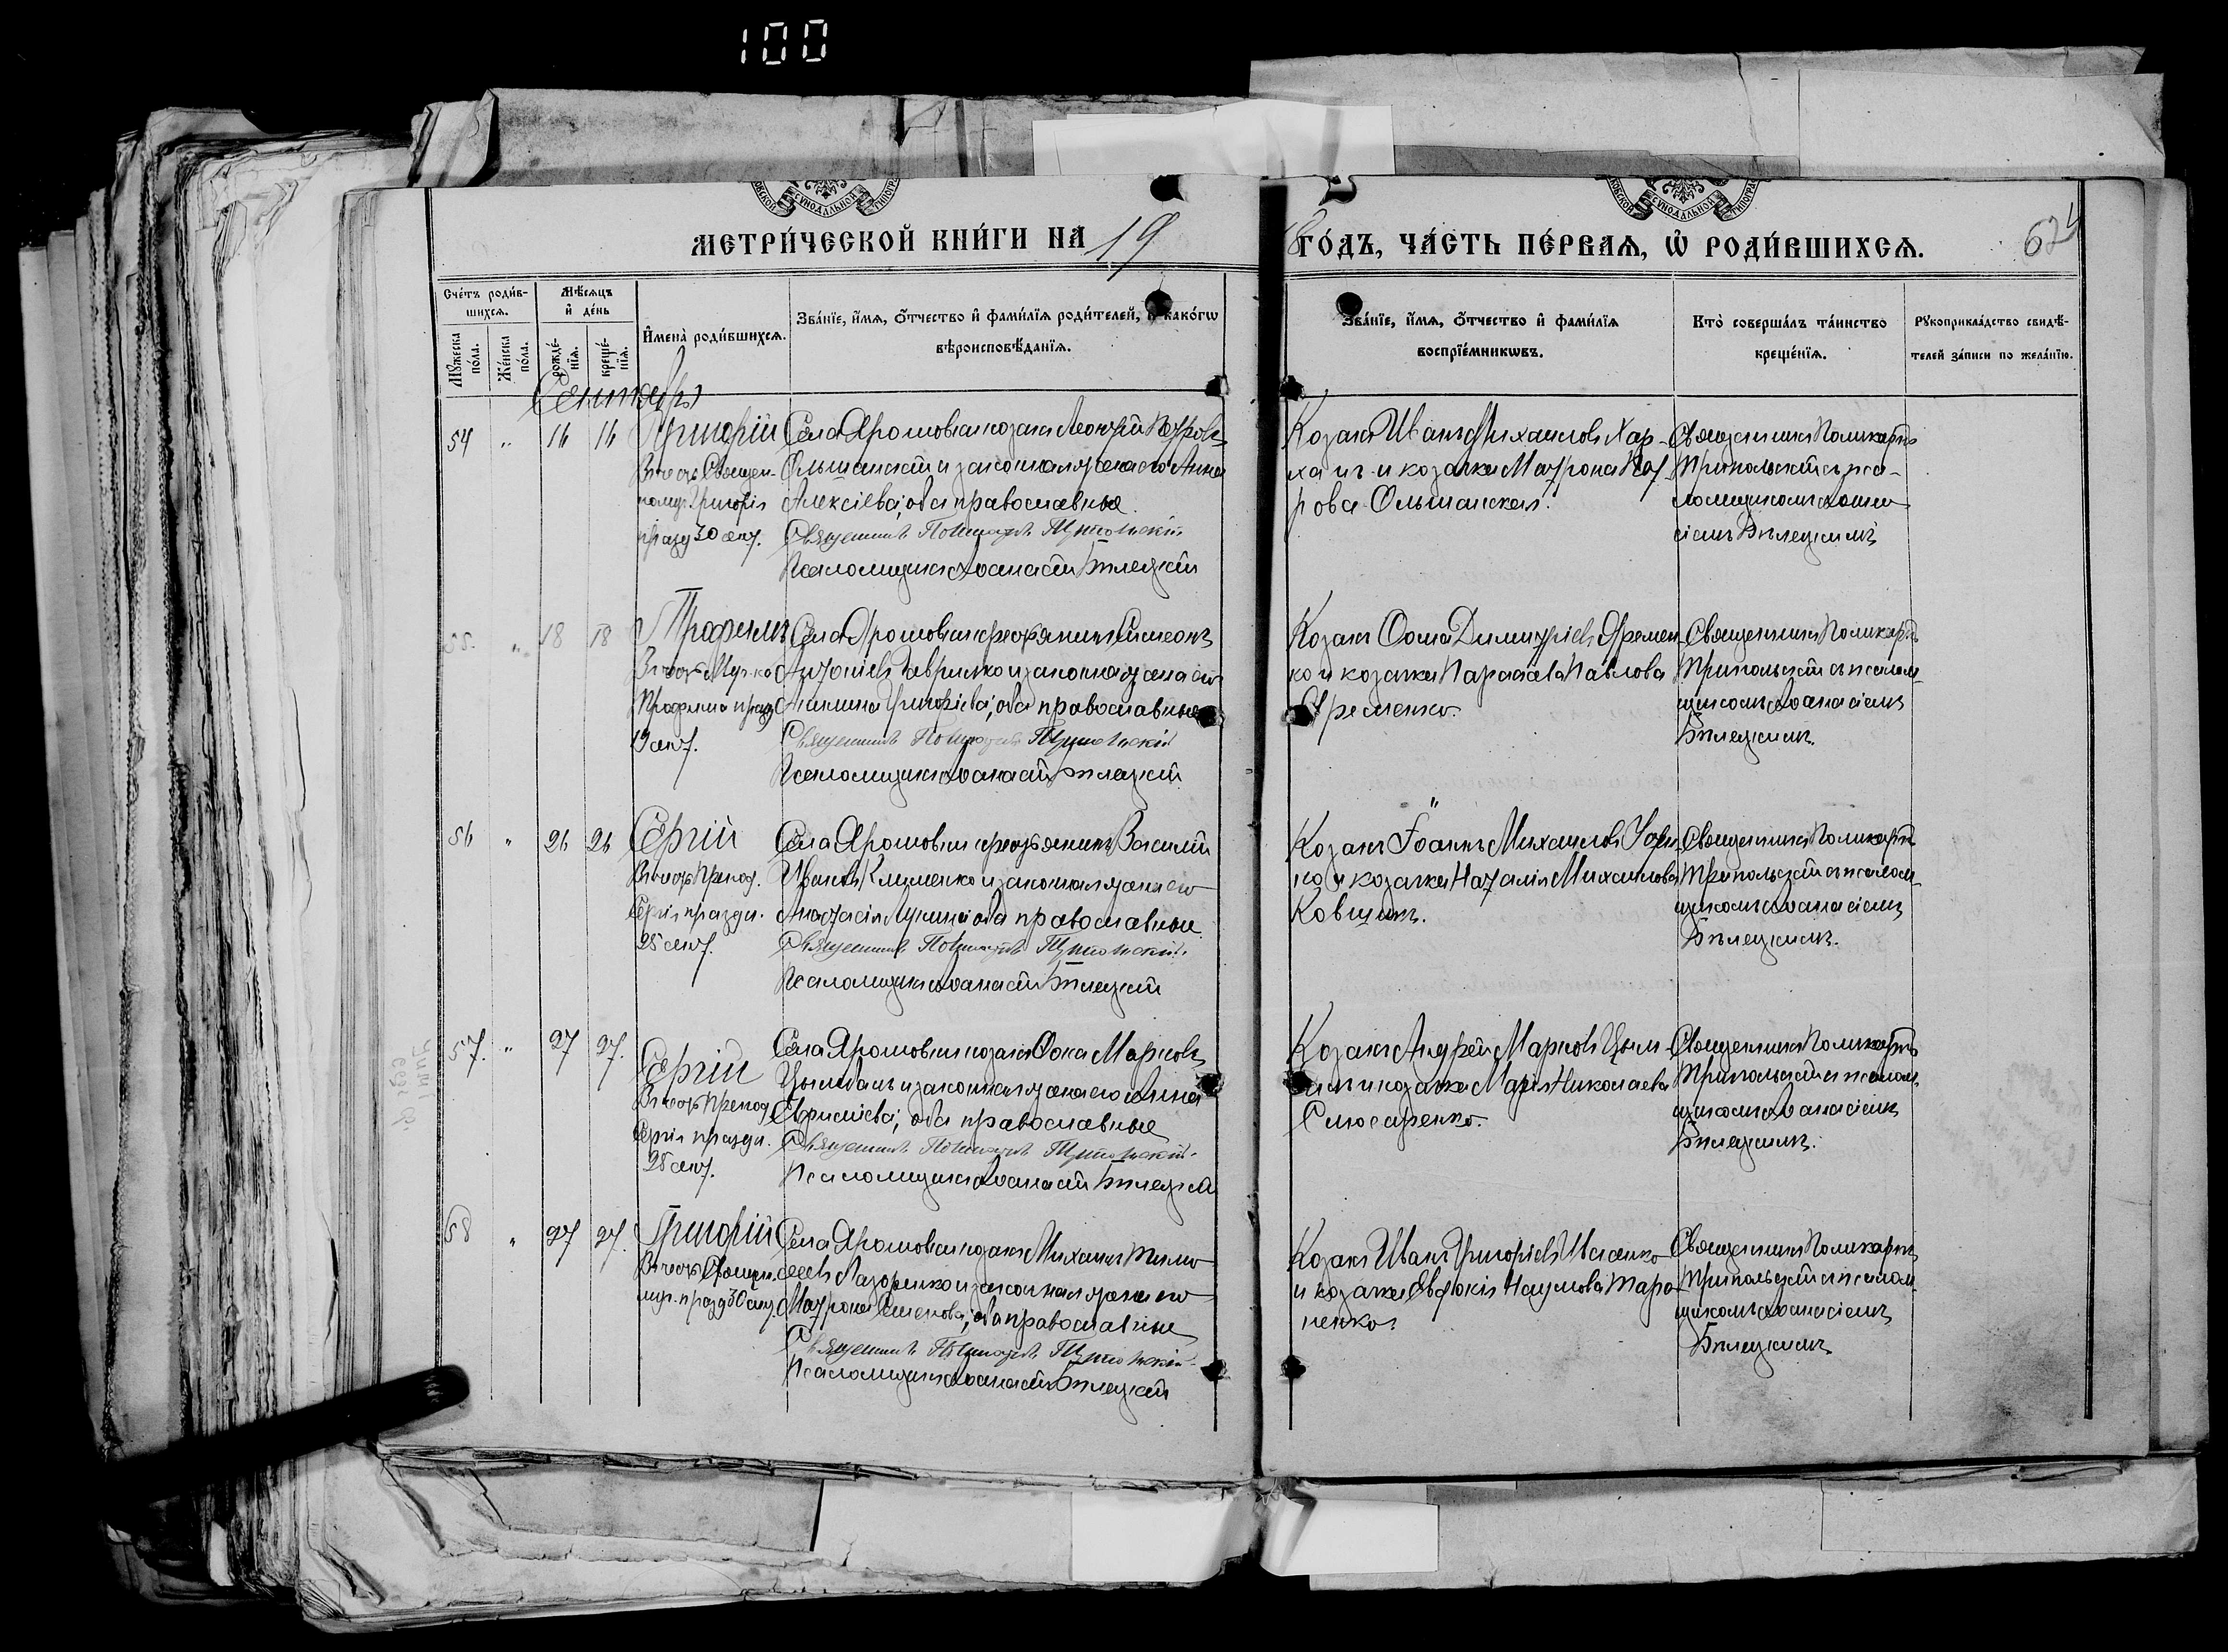 100
МЕТРИ́ЧЕСКОЙ КНИ́ГИ НА 19
ГО́ДЪ, ЧА́СТЬ ПЕ́РВАѦ, Ѡ҆ РОДИ́ВШИХСѦ.
Сче́тъ роди́в-
шихсѧ.
Мѣ́сѧцъ
и҆ де́нь
Мꙋ́жеска
по́ла.
Же́нска
по́ла.
рожде́-
нїѧ.
креще́-
нїѧ.
И҆мена̀ роди́вшихсѧ.
Зва́нїе, и҆́мѧ, ѻ҆́тчество и҆ фами́лїѧ роди́телей, и҆ како́гѡ
вѣроисповѣ́данїѧ.
Зва́нїе, и҆́мѧ, ѻ҆́тчество и҆ фами́лїѧ
воспрїе́мникѡвъ.
Кто̀ соверша́лъ та́инство
креще́нїѧ.
Рꙋкоприкла́дство свидѣ́-
телей за́писи по жела́нїю.
Сентябрь
54 " 16 16 Григорій
Въ честь Священ-
номуч. Григорія
празд 30 сент.
Села Ярошовки козакъ Леонтій Петровъ
Ольшанскій и законная жена его Анна
Алексіева, оба православные.
Священникъ Поликарпъ Трипольскій
Псаломщикъ Аѳанасій Бѣлецкій
Козакъ Иванъ Михаиловъ Хар-
и козачка Матрона Пет-
рова Ольшанская.
Священникъ Поликарпъ
Трипольскій съ пса-
ломщикомъ Аѳана-
сіемъ Бѣлецкимъ
55. " 18 18 Трофимъ
Въ честь Муч-ка
Трофима празд
19 сент.
Села Ярошовки крестьянинъ Симеонъ
Антоніевъ Гавришко и законная жена его
Акилина Григоріева, оба православные
Священникъ Поликарпъ Трипольскій
Псаломщикъ Аѳанасій Бѣлецкій
Козакъ Ѳома Димитріевъ Яремен-
ко и козачка Параскева Павлова
Яременко.
Священникъ Поликарпъ
Трипольскій съ псалом-
щикомъ Аѳанасіемъ
Бѣлецкимъ.
56 " 26 26 Сергій
Въ честь Препод.
Сергія праздн.
25 сент.
Села Ярошовки крестьянинъ Василій
Ивановъ Клименко и законная жена его
Анастасія Лукина оба православные.
Священникъ Поликарпъ Трипольскій.
Псаломщикъ Аѳанасій Бѣлецкій
Козакъ Іоаннъ Михаиловъ
и козачка Наталія Михаилова
Ковшикъ.
Священникъ Поликарпъ
Трипольскій съ псалом-
щикомъ Аѳанасіемъ
Бѣлецкимъ.
57. " 27 27. Сергій
Въ честь Препод
Сергія праздн.
25 сент.
Села Ярошовки козакъ Ѳока Марковъ
Цымбалъ и законная жена его Анна
оба православные
Священникъ Поликарпъ Трипольскій.
Псаломщикъ Аѳанасій Бѣлецкій
Козакъ Андрей Марковъ Цым-
балъ и козачка Марія Николаева
Слюсаренко.
Священникъ Поликарпъ
Трипольскій съ псалом-
щикомъ Аѳанасіемъ
Бѣлецкимъ.
58 " 27 27. Григорій
Въ честь Священ.
муч. празд 30 сент.
Села Ярошовки козакъ Михаилъ Тимо-
ѳеевъ Лазоренко и законная жена его
Матрона Семенова, оба православные
Священникъ Поликарпъ Трипольскій.
Псаломщикъ Аѳанасій Бѣлецкій
Козакъ Иванъ Григоріевъ Исаенко
и козачка Евдокія Наумова Тара-
ненко.
Священникъ Поликарпъ
Трипольскій съ псалом-
щикомъ Аѳанасіемъ
Бѣлецкимъ